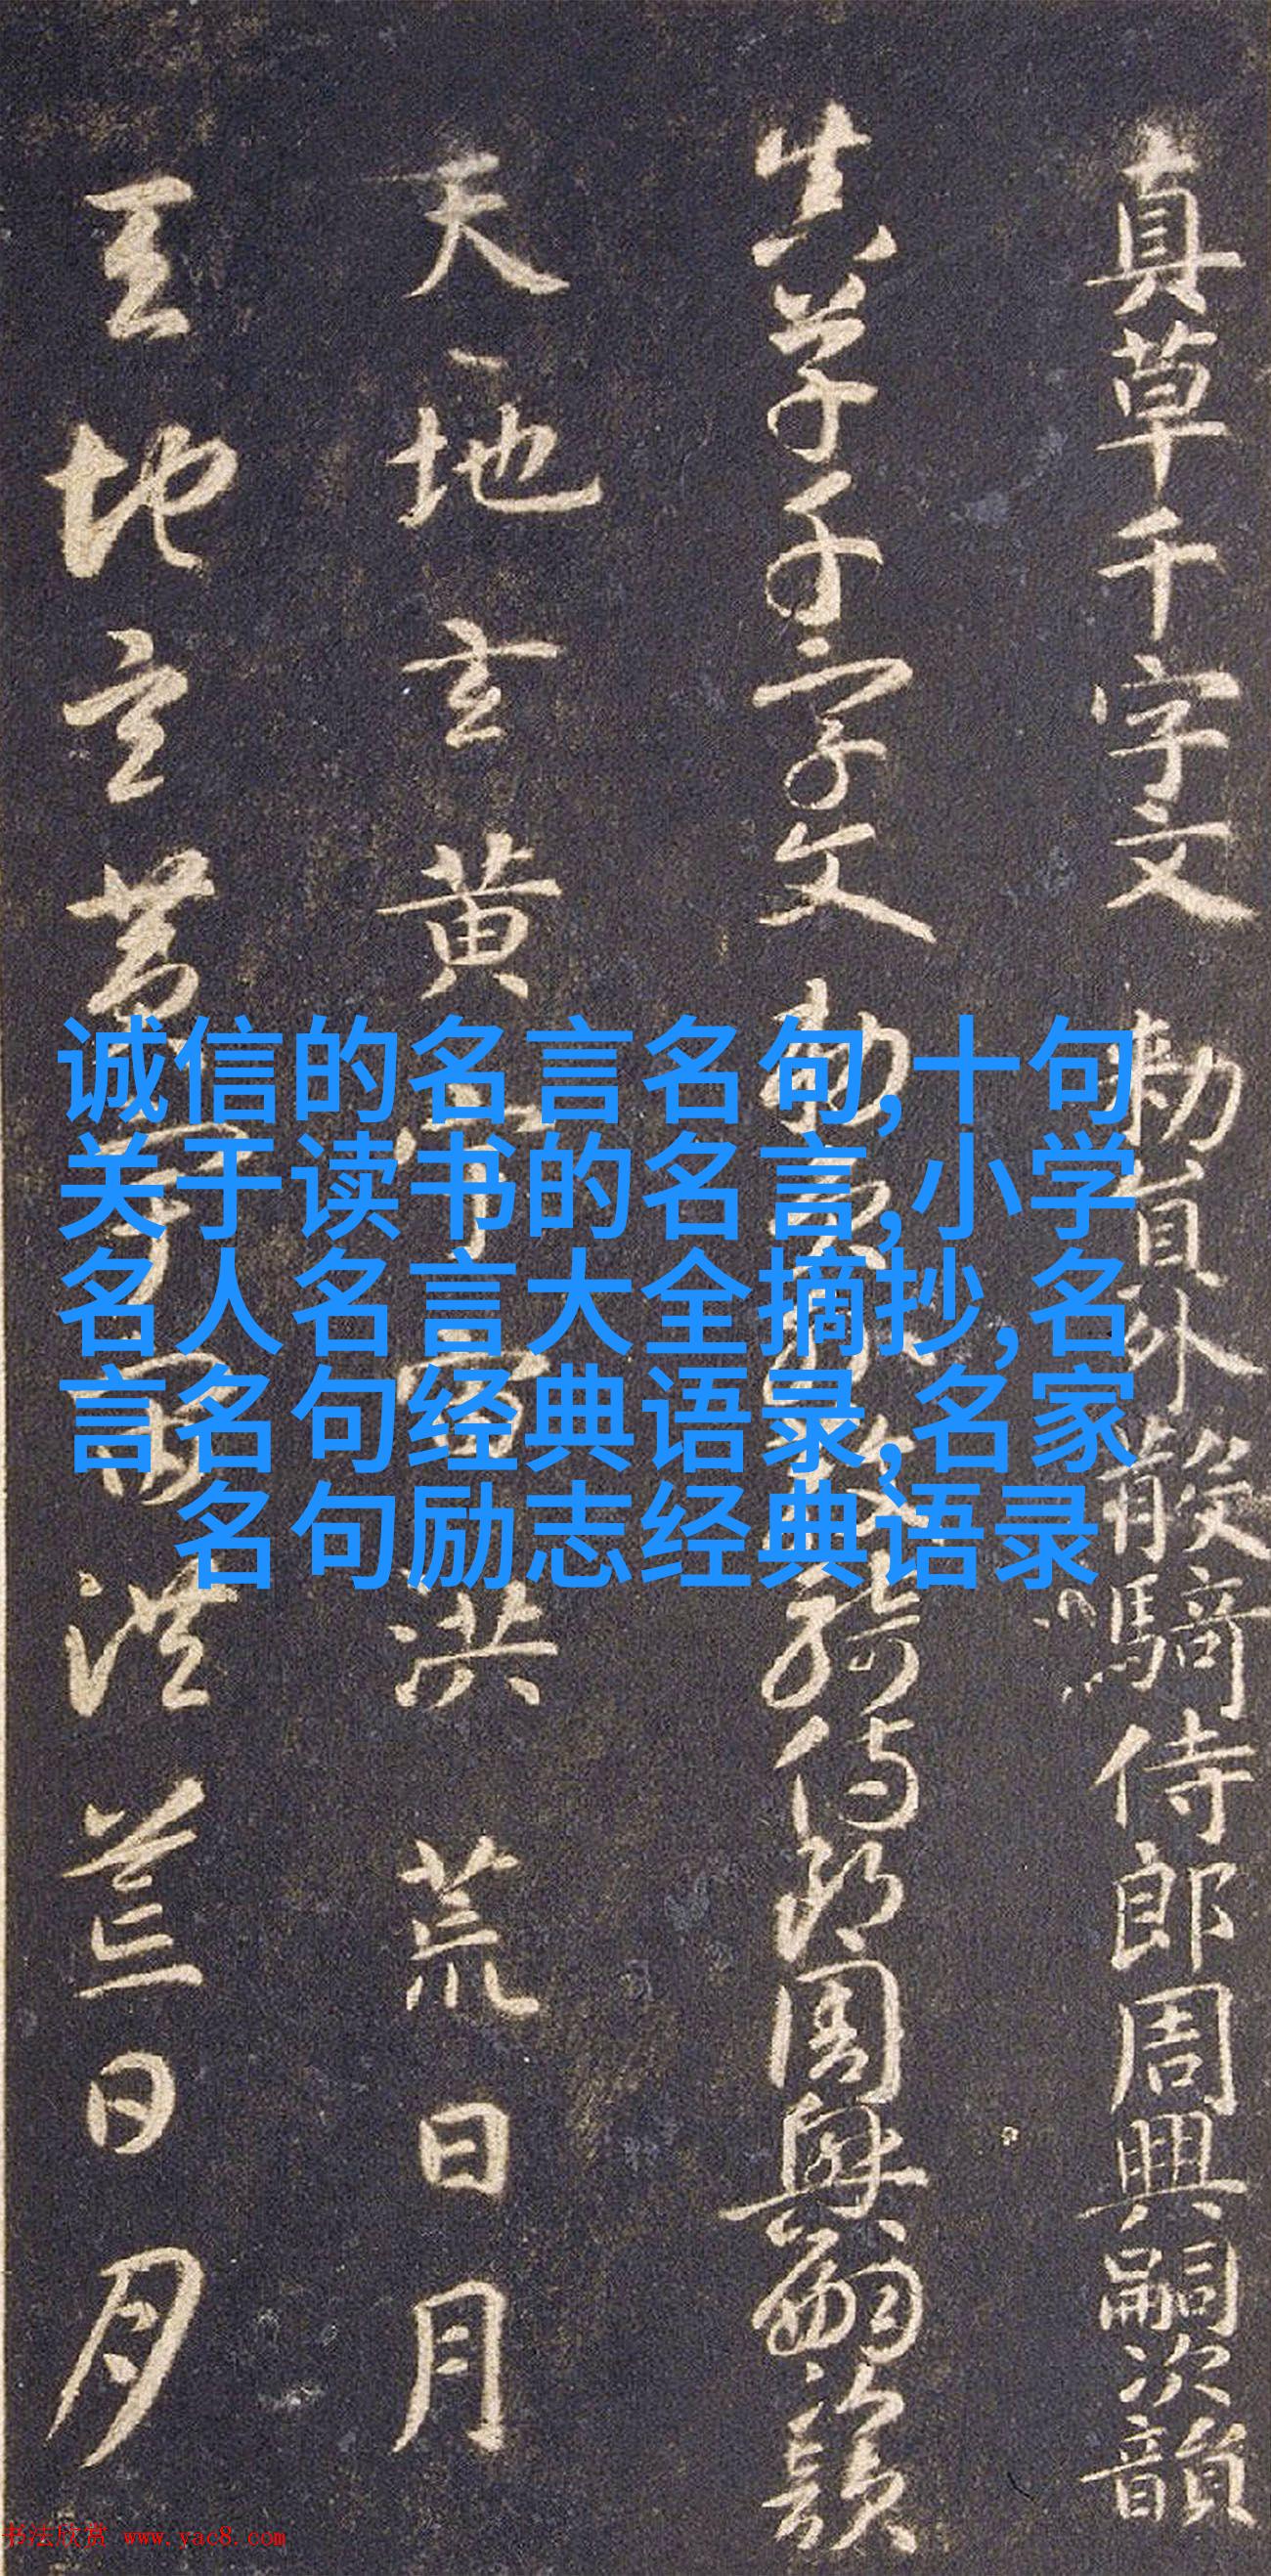 真草千字文 勅員外散騎侍郎周興嗣次韻
真草千字文 勅員外散騎侍郎周興嗣次韻
天地玄黄宇宙洪荒日月
天地玄黄宇宙洪荒日月
诚信的名言名句,十句
关于读书的名言,小学
名人名言大全摘抄,名
言名句经典语录,名家
名句励志经典语录
书法欣赏 www.yac8.com